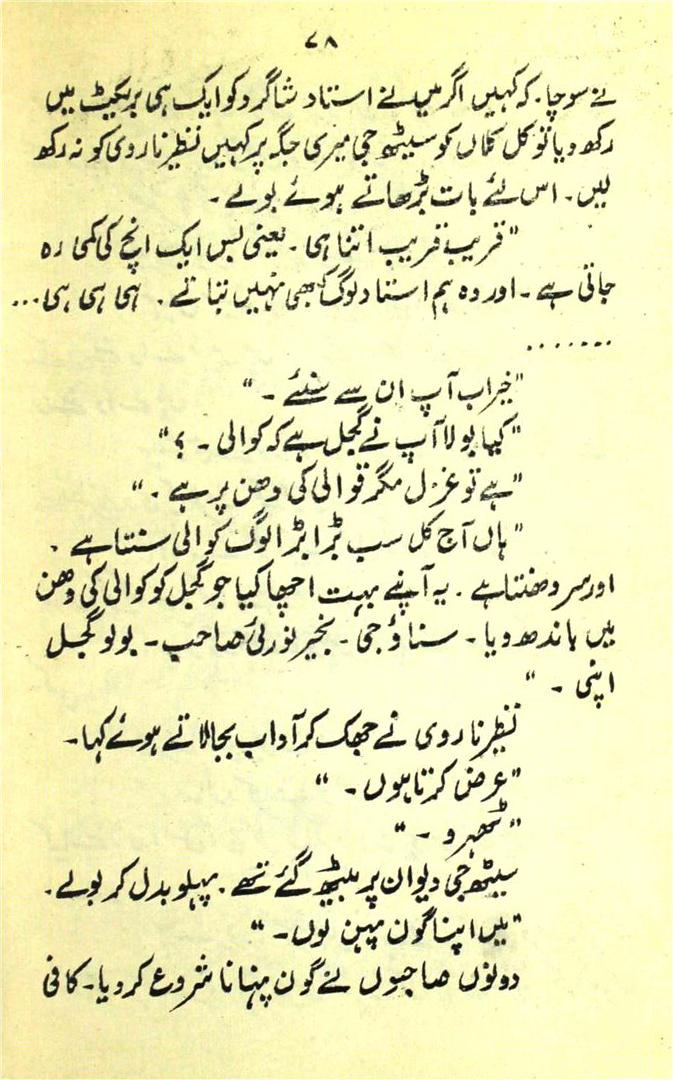 ۷۸
نے سوچا۔ کہ کہیں اگر میں نے استاد شاگرد کو ایک ہی بریکیٹ میں
رکھ دیا تو کل کلاں کو سیٹھ جی میری جگہ پر کہیں نظیر ناروی کو نہ رکھ
لیں۔ اس لئے بات بڑھاتے ہوئے بولے۔
"قریب قریب اتنا ہی۔ یعنی بس ایک انچ کی کمی رہ
جاتی ہے۔ اور وہ ہم استاد لوگ کبھی نہیں بتاتے۔ ہی ہی ہی...
.......
"خیر اب آپ ان سے سنئے۔"
"کیا بولا آپ نے گجل ہے کہ کوالی۔؟"
"ہے تو غزل مگر قوالی کی دھن پر ہے۔"
"ہاں آج کل سب بڑا بڑا لوگ کوالی سنتا ہے۔
اور سر دھنتا ہے۔ یہ آپنے بہت اچھا کیا جو گجل کو کوالی کی دھن
میں باندھ دیا۔ سناؤ جی۔ نجیر نوریٔ صاحب۔ بولو گجل
اپنی۔"
نظیر ناروی نے جھک کر آداب بجا لاتے ہوئے کہا۔
"عرض کرتا ہوں۔"
"ٹھہرو۔"
سیٹھ جی دیوان پر بیٹھ گئے تھے۔ پہلو بدل کر بولے۔
"میں اپنا گون پہن لوں۔"
دونوں صاحبوں نے گون پہنانا شروع کر دیا۔ کافی